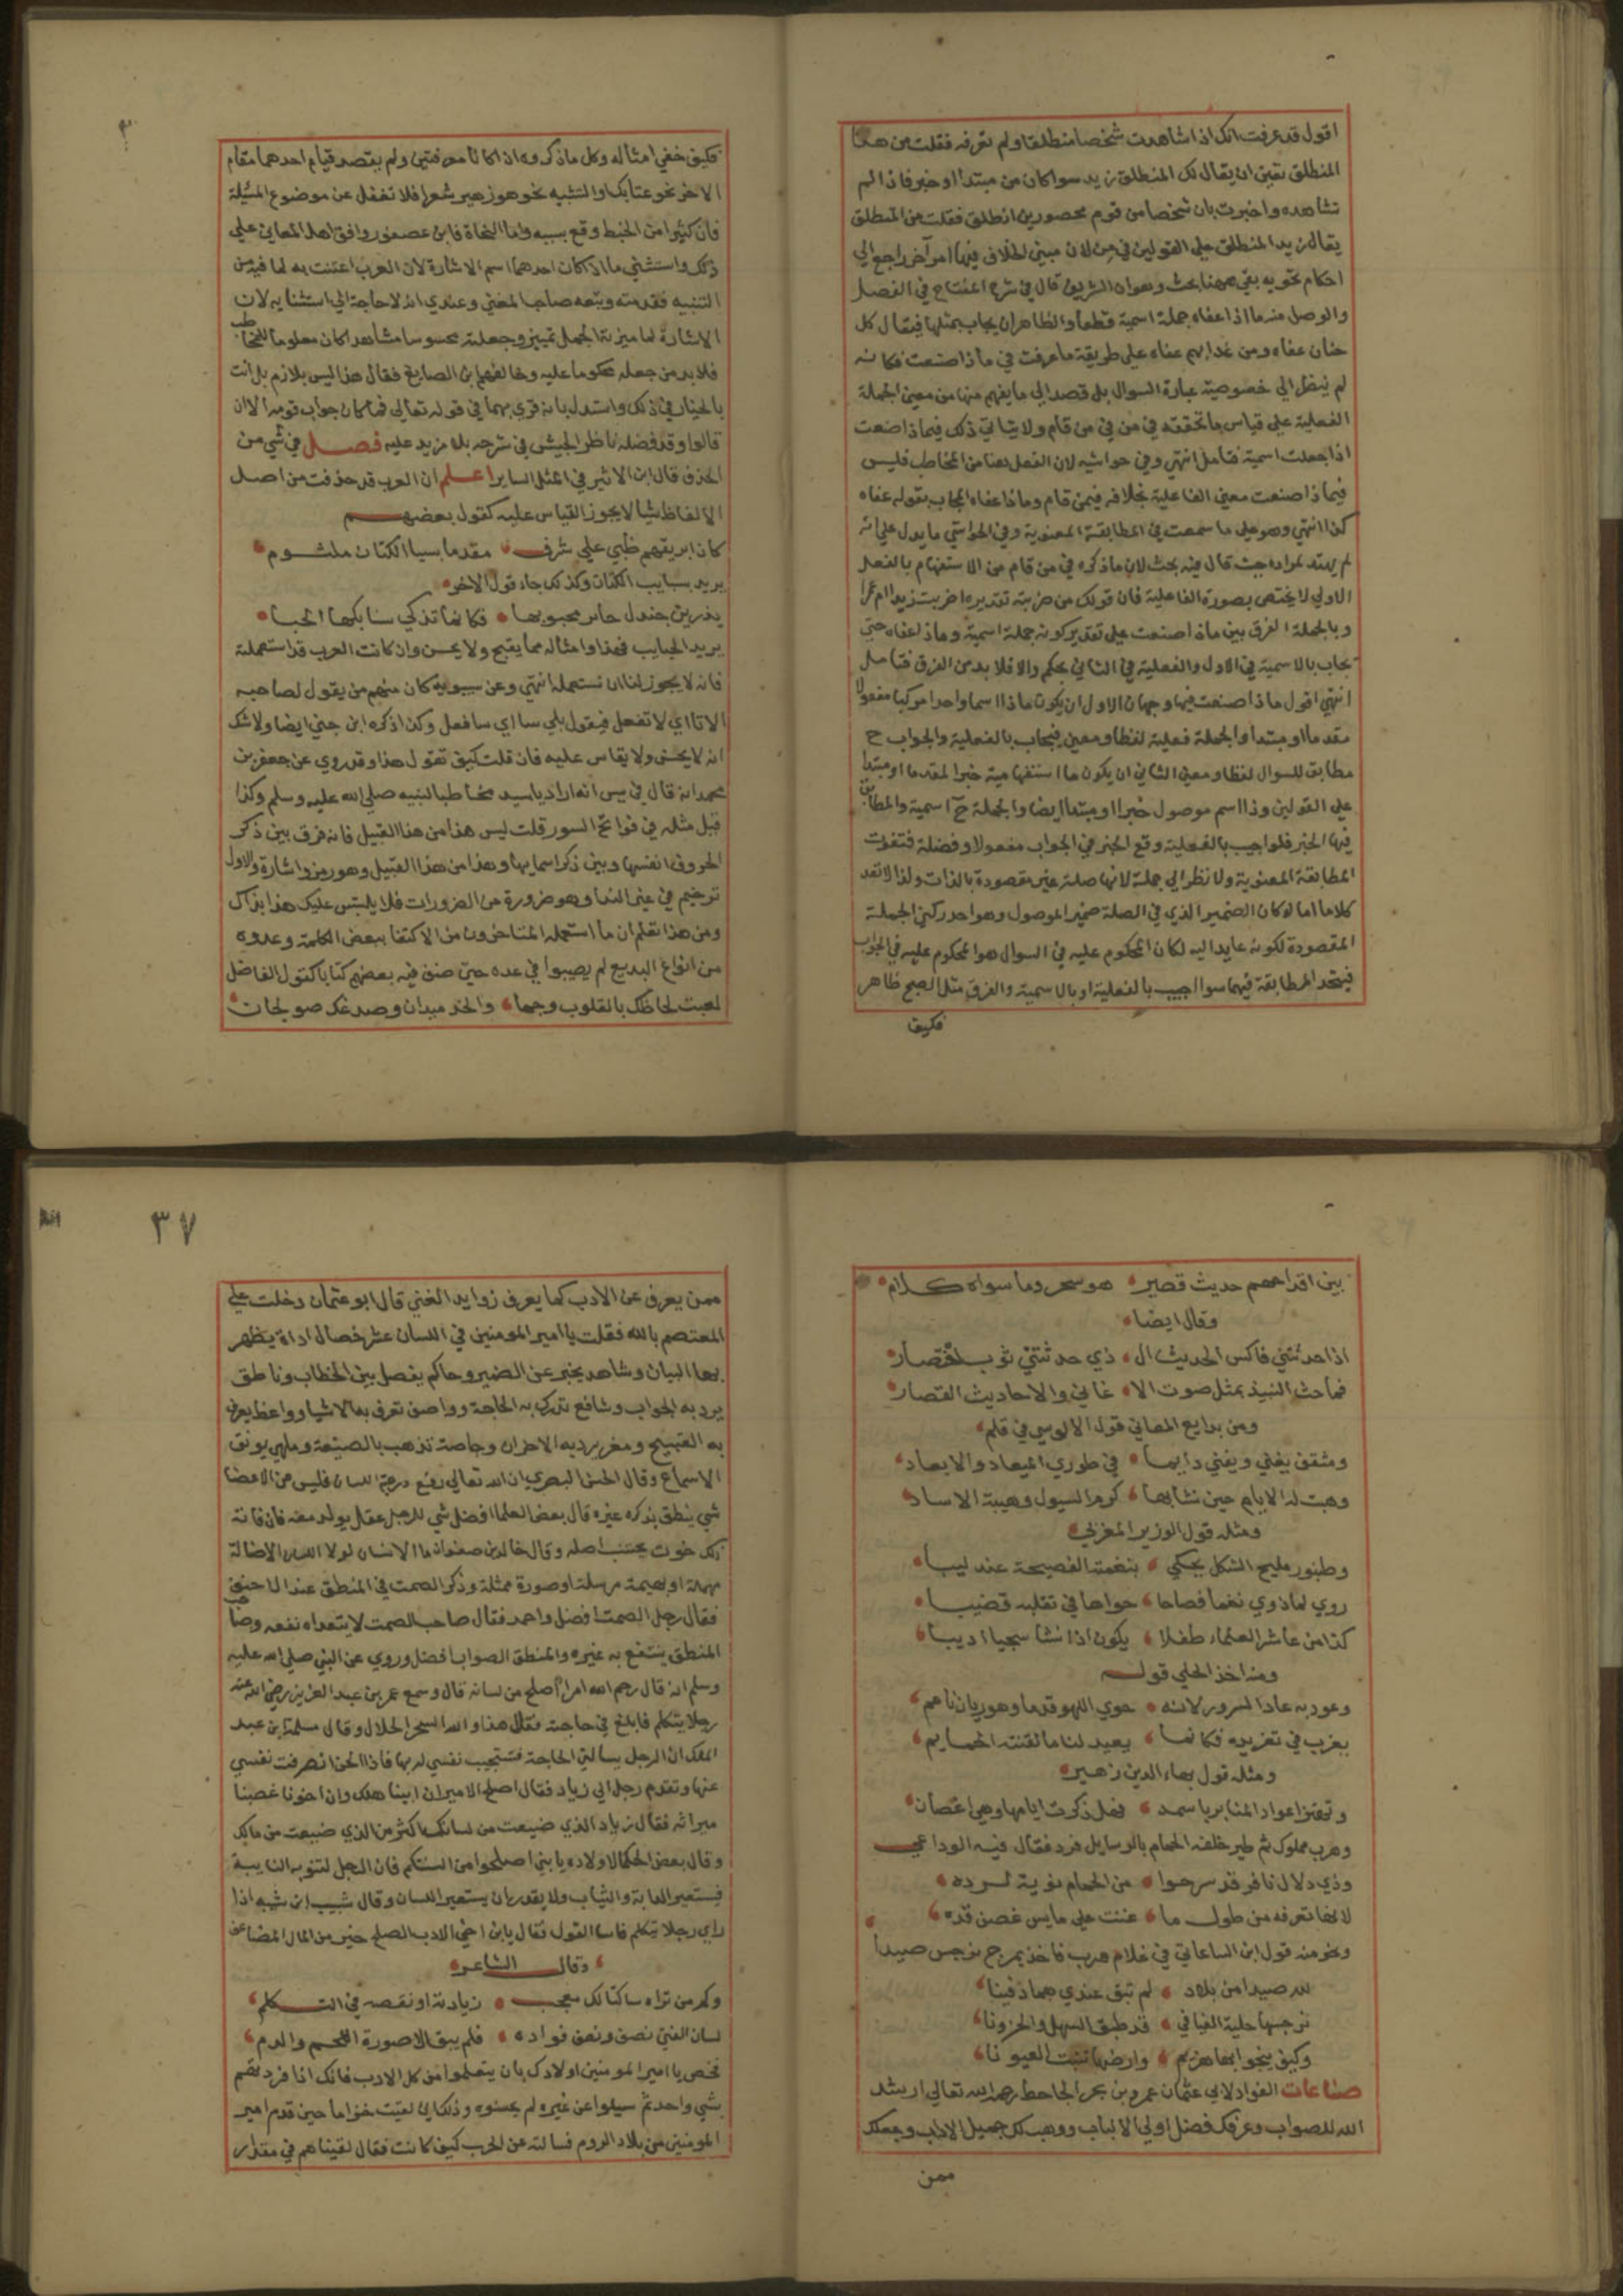 اقول قد عرفت انك اذا شاهدت شخصا منطلقا ولم تعرفه فقلت من هذا
المنطلق تعين ان يقال لك المنطلق زيد سوا كان من مبتدا او خبر فاذا لم
تشاهده واخبرت بان شخصا من قوم محصورين انطلق فقلت من المنطلق
يقال زيد المنطلق علي القولين في من لان مبني الخلاف فيها امر آخر راجع الي
احكام نحويه بقي ههنا بحث وهو ان الشريف قال في شرح المفتاح في الفصل
والوصل منه ما اذا عفاه جملة اسمية قطعا والظاهر ان يجاب بمثلها فيقال كل
حنان عفاه ومن غدا بهم عفاه علي طريقة ما عرفت في ماذا صنعت فكانه
لم ينظر الي خصوصية عبارة السوال بل قصد الي ما يفهم منها من معني الجملة
الفعلية علي قياس ما تحققته في من في من قام ولا يتاتي ذلك فيماذا صنعت
اذا جعلت اسمية فتامل انتهي وفي حواشيه لان الفعل هنا من المخاطب فليس
فيماذا صنعت معني الفاعلية بخلافه فيمن قام وماذا عفاه المجاب بقوله عفاه
كذا انتهي وهو علي ما سمعت في المطابقة المعنوية وفي الحواشي ما يدل علي انه
لم يهتد لمراده حيث قال فيه بحث لان ما ذكره في من قام من الاستفهام بالفعل
الاولي لا يختص بصورة الفاعلية فان قولك من ضربته تقديره اضربت زيدا ام عمرا
وبالجملة الفرق بين ماذا صنعت علي تقدير كونه جملة اسمية وماذا عفاه حتي
يجاب بالاسمية في الاول والفعلية في الثاني تحكم والا فلا بد من الفرق فتامل
انتهي اقول ماذا صنعت فيها وجهان الاول ان يكون ماذا اسما واحدا مركبا مفعولا
مقدما او مبتدا والجملة فعلية لفظا ومعني فيجاب بالفعلية والجواب ح
مطابق للسوال لفظا ومعني الثاني ان يكون ما استفهامية خبرا مقدما او مبتدا
علي القولين وذا اسم موصول خبرا او مبتدا ايضا والجملة ح اسمية والمطابق
فيها الخبر فلو اجيب بالفعلية وقع الخبر في الجواب مفعولا وفضلة فتفوت
المطابقة المعنوية ولا نظر الي جملة لانها صلة غير مقصودة بالذات ولذا لا تعد
كلاما اما لو كان الضمير الذي في الصلة ضمير الموصول وهو احد ركني الجملة
المقصودة لكونه عايدا اليه لكان المحكوم عليه في السوال هو المحكوم عليه في الجواب
فيتحد المطابقة فيهما سوا اجيب بالفعلية او بالاسمية والفرق مثل الصبح ظاهر
فكيف
فكيف خفي امثاله وكل ما ذكروه اذا كانا معرفتين ولم يقصد قيام احدهما مقام
الاخر نحو عتابك والتشبيه نحو هو زهير شعرا فلا تغفل عن موضوع المسئلة
فان كثيرا من الخبط وقع بسببه واما النحاة فابن عصفور وافق اهل المعاني علي
ذلك واستثني ما اذا كان احدهما اسم الاشارة لان العرب اعتنت به لما فيه من
التنبيه فقدمته وتبعه صاحب المغني وعندي انه لا حاجة الي استثنايه لان
الاشارة لما ميزته اكمل تمييز وجعلته محسوسا مشاهدا كان معلوما للمخاطب
فلا بد من جعله محكوما عليه وخالفهم ابن الصايغ فقال هذا ليس بلازم بل انت
بالخيار في ذلك واستدل بانه قري بهما في قوله تعالي فما كان جواب قومه الا ان
قالوا وقد فصله ناظر الجيش في شرحه بما لا مزيد عليه فصل في شي من
الحذف قال ابن الاثير في المثل الساير اعلم ان العرب قد حذفت من اصل
الالفاظ شيا لا يجوز القياس عليه كقول بعضهم
كان ابريقهم ظبي علي شرف مقدما بسبا الكتان ملثوم
يريد بسبايب الكتان وكذلك جاء قول الاخر
يذرين جندل حاير محبوبها فكانما تذكي سنابكها الحبا
يريد الحبايب فهذا وامثاله مما يقبح ولا يحسن وان كانت العرب قد استعملته
فانه لا يجوز لنا ان نستعمله انتهي وعن سيبويه كان منهم من يقول لصاحبه
الاتا اي لا تفعل فيقول بلي سا اي سافعل وكذا ذكره ابن جني ايضا ولا شك
انه لا يحسن ولا يقاس عليه فان قلت كيف تقول هذا وقد روي عن جعفر بن
محمد انه قال في يس انه اراد يا سيد مخاطبا لنبيه صلي الله عليه وسلم وكذا
قيل مثله في فواتح السور قلت ليس هذا من هذا القبيل فانه فرق بين ذكر
الحروف انفسها وبين ذكر اسمايها وهذا من هذا القبيل وهو رمز واشارة والاول
ترخيم في غير الندا وهو ضرورة من الضرورات فلا يلتبس عليك هذا بذاك
ومن هذا تعلم ان ما استعمله المتاخرون من الاكتفا ببعض الكلمة وعدوه
من انواع البديع لم يصيبوا في عده حتي صنف فيه بعضهم كتابا كقول الفاضل
لعبت لحاظك بالقلوب وحبها والخد ميدان وصدغك صولجان
بين اقداحهم حديث قصير هو سحر وما سواه كلام
وقال ايضا
اذا حدثتني فاكس الحديث ال ذي حدثتني ثوب اختصار
فما حث النبيذ بمثل صوت الا غاني والاحاديث القصار
ومن بدايع المعاني قول الالوسي في قلم
ومثقف يغني ويفني دايما في طوري الميعاد والابعاد
وهبت له الايام حين نشابها كرم السيول وهيبة الاساد
ومثله قول الوزير المغربي
وطنبور مليح الشكل يحكي بنغمته الفصيحة عندليبا
روي لما ذوي نغما فصاحا حواها في تقلبه قضيبا
كذا من عاشر العلماء طفلا يكون اذا نشا شيخا اديبا
ومنه اخذ الحلي قوله
وعود به عاد السرور لانه حوي اللهو قدما وهو ريان ناعم
يغرب في تغريده فكانما يعيد لنا ما لقنته الحمايم
ومثله قول بهاء الدين زهير
وتهتز اعواد المنابر باسمه فهل ذكرت ايامها وهي اغصان
وهرب مملوك ثم طير خلفه الحمام بالرسايل فرد فقال فيه الوداعي
وذي دلال نافر قد سرحوا من الحمام نوبة لرده
لانها تعرفه من طول ما غنت علي مايس غصن قده
ونحو منه قول ابن الساعاتي في غلام هرب فاخذ بمرج نرجس صيدا
لله صيدا من بلاد لم تبق عندي هما دفينا
نرجسها حلية الفيافي قد طبق السهل والحزونا
وكيف ينجو بها هزيم وارضها تنبت العيونا
صناعات القواد لابي عثمان عمرو بن بحر الجاحظ رحمه الله تعالي ارشدك
الله للصواب وعرفك فضل اولي الالباب ووهب لك جميل الاداب وجعلك
ممن
٣٧
ممن يعرف عن الادب كما يعرف زوايد الغني قال ابو عثمان دخلت علي
المعتصم بالله فقلت يا امير المومنين في اللسان عشر خصال اداة يظهر
بها البيان وشاهد يخبر عن الضمير وحاكم يفصل بين الخطاب وناطق
يرد به الجواب وشافع تدرك به الحاجة وواصف تعرف به الاشيا وواعظ يعرف
به القبيح ومعز يرد به الاحزان وخاصة تذهب بالصنيعة وملهي يونق
الاسماع وقال الحسن البصري ان الله تعالي رفع درجة اللسان فليس من الاعضا
شي ينطق بذكره غيره قال بعض العلما افضل شي للرجل عقل يولد معه فان فاته
ذلك فموت يجتث اصله وقال خالد بن صفوان ما الانسان لولا اللسان الا ضالة
مهملة او بهيمة مرسلة او صورة ممثلة وذكر الصمت في المنطق عند الاحنف
فقال رجل الصمت افضل واحمد فقال صاحب الصمت لا يتعداه نفعه وصاحب
المنطق ينتفع به غيره والمنطق الصواب افضل وروي عن النبي صلي الله عليه
وسلم انه قال رحم الله امرا اصلح من لسانه قال وسمع عمر بن عبد العزيز رضي الله عنه
رجلا يتكلم فابلغ في حاجته فقال هذا والله السحر الحلال وقال مسلمة بن عبد
الملك ان الرجل يسالني الحاجة فتستجيب نفسي له بها فاذا لحن انصرفت نفسي
عنها وتقدم رجل الي زياد فقال اصلح الامير ان ابينا هلك وان اخونا غصبنا
ميراثه فقال زياد الذي ضيعت من لسانك اكثر من الذي ضيعت من مالك
وقال بعض الحكما لاولاده يا بني اصلحوا من السنتكم فان الرجل لتنوبه النايبة
فيستعير الدابة والثياب ولا يقدر ان يستعير اللسان وقال شبيب ابن شيبه اذا
راي رجلا يتكلم فاسا القول فقال يا بن اخي الادب الصالح خير من المال المضاعف
وقال الشاعر
وكم من تراه ساكتا لك معجب زيادته او نقصه في التكلم
لسان الفتي نصف ونصف فواده فلم يبق الا صورة اللحم والدم
فخص يا امير المومنين اولادك بان يتعلموا من كل الادب فانك اذا فردتهم
بشي واحد ثم سيلوا عن غيره لم يحسنوه وذلك اني لقيت خزاما حين قدم امير
المومنين من بلاد الروم فسالته عن الحرب كيف كانت فقال لقيناهم في مقدار